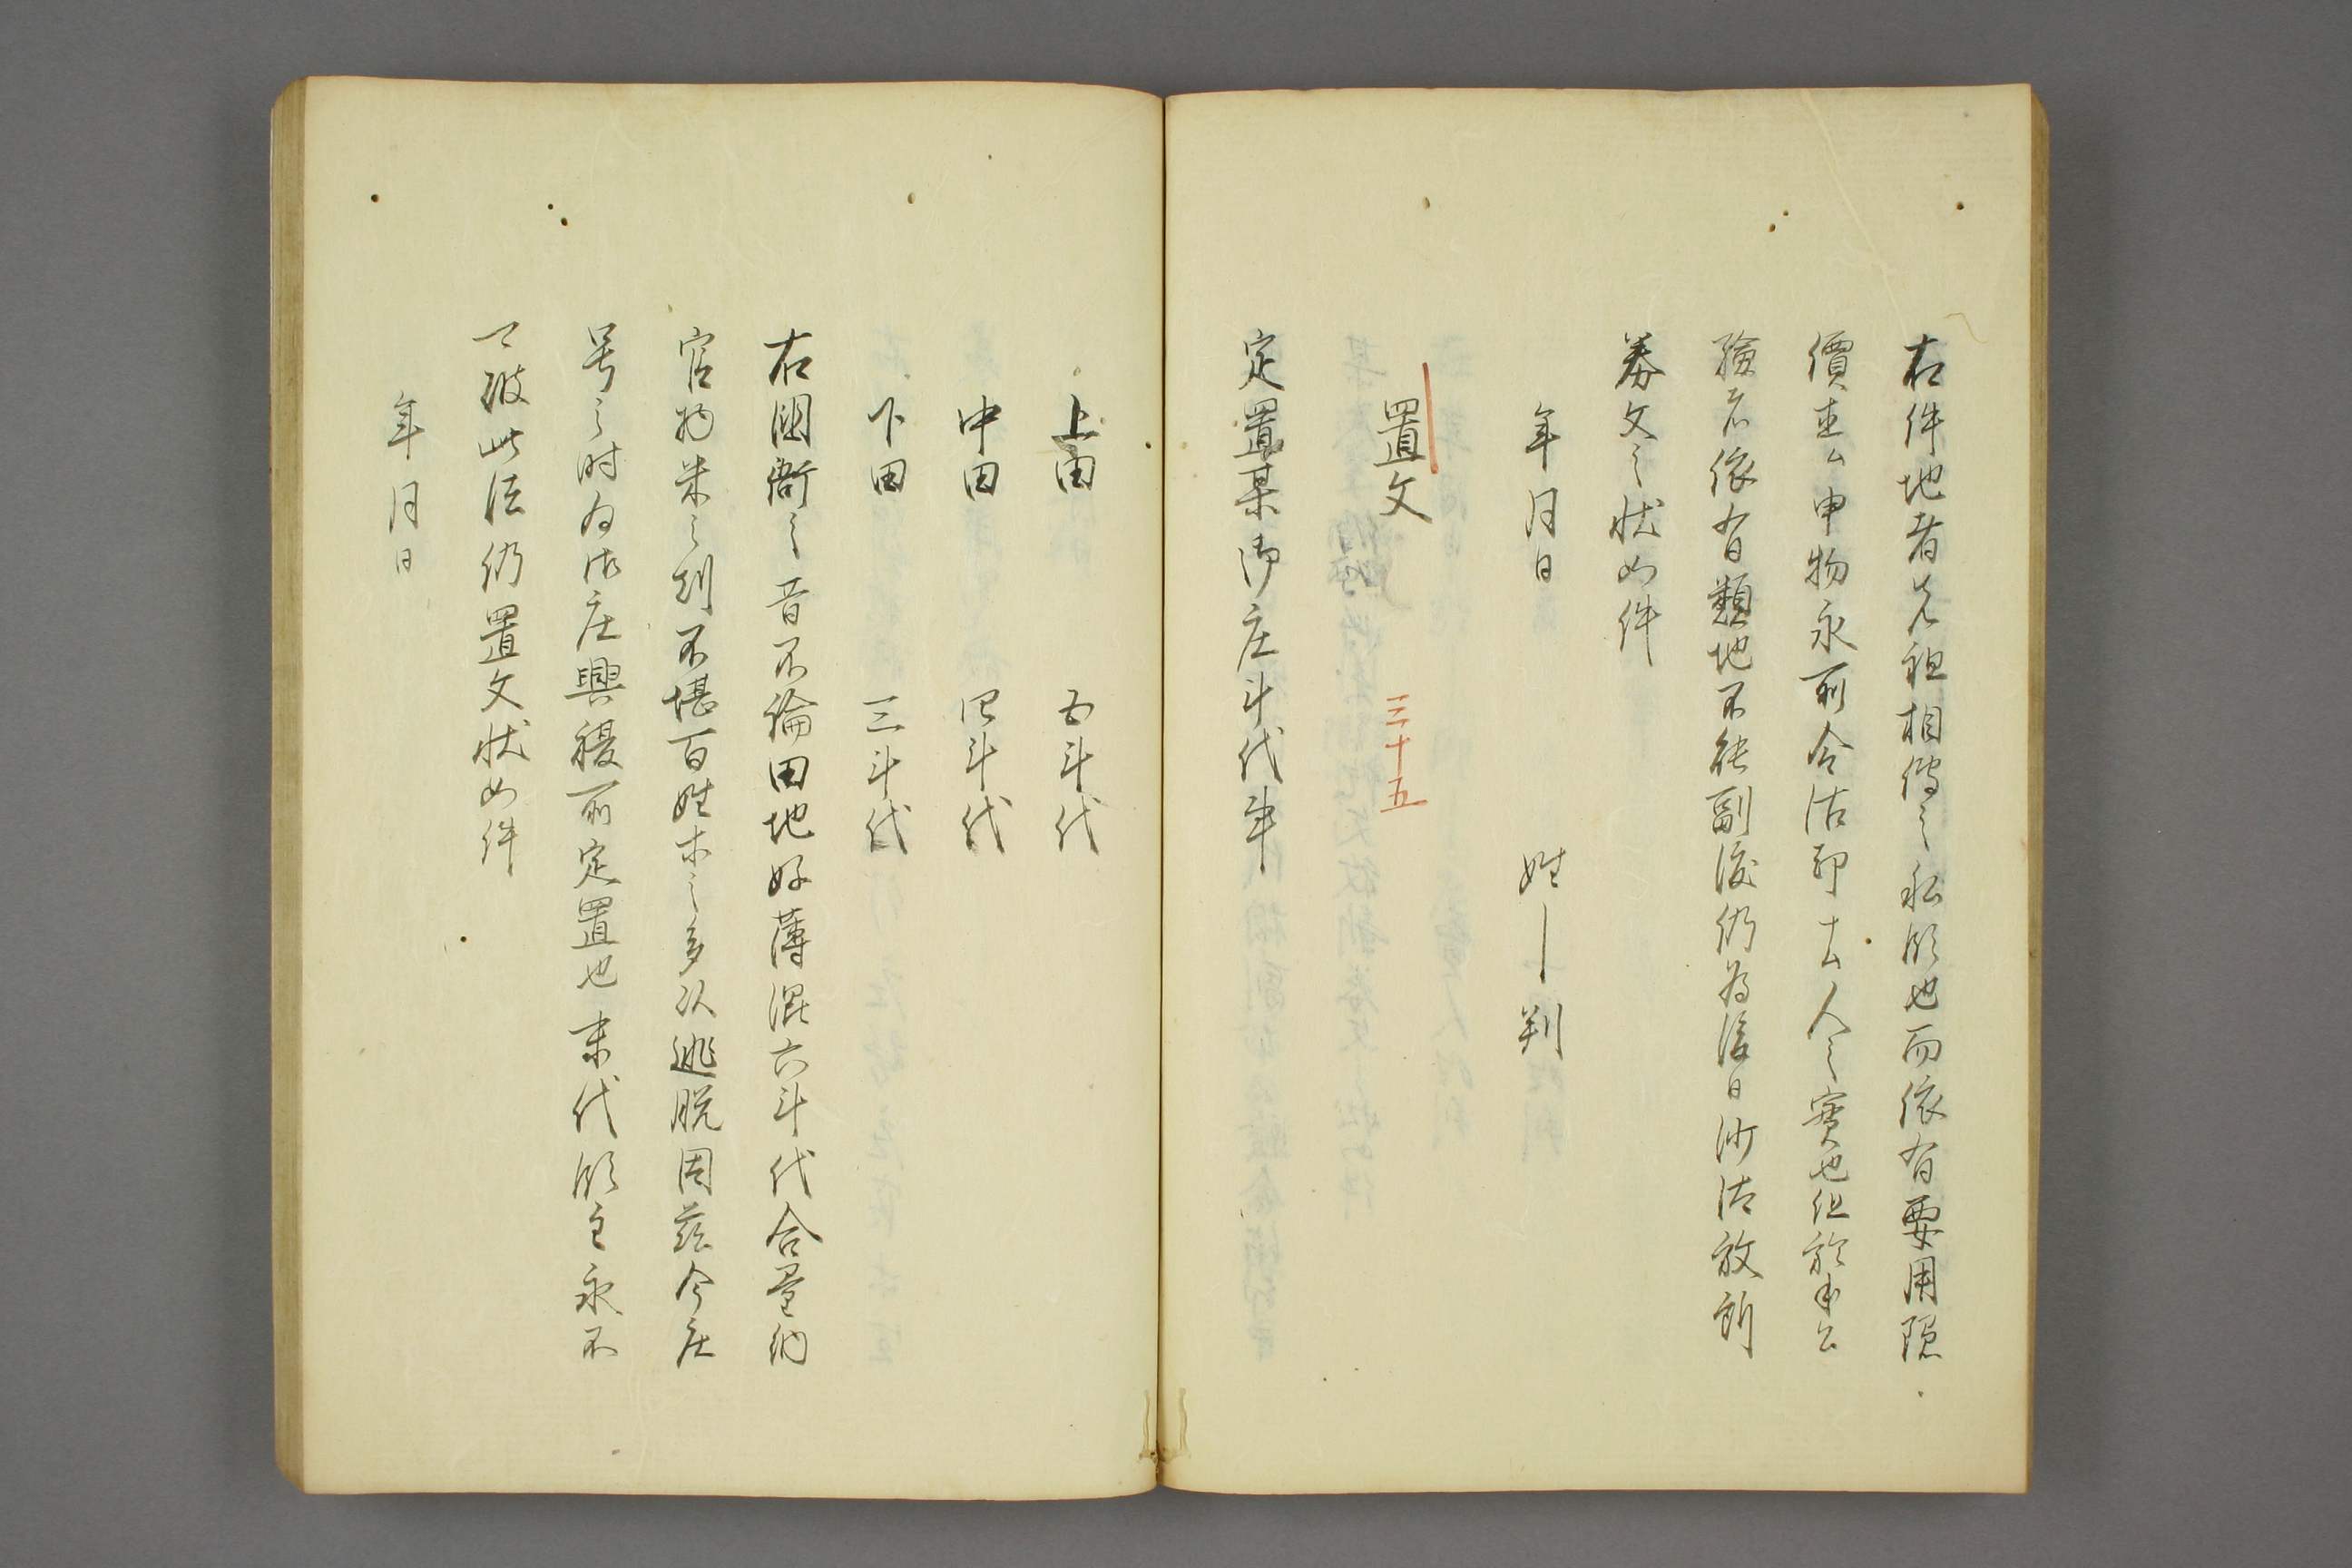 右件地者先祖相傳之私領也而依有要用限
價直ム申物永所令沽却ム人之實也但於本公
驗者依有類地不能副渡仍為後日沙汰放新
券文之狀如件
年月日 姓 判
置文 三十五
定置某御庄斗代事
上田 五斗代
中田 四斗代
下田 三斗代
右國衙之昔不論田地好薄混六斗代合量納
官物米之剋不堪百姓木之多以逃脱因茲今庄
号之时為御庄興複所定置也末代領主永不
可破此法仍置文狀如件
年月日